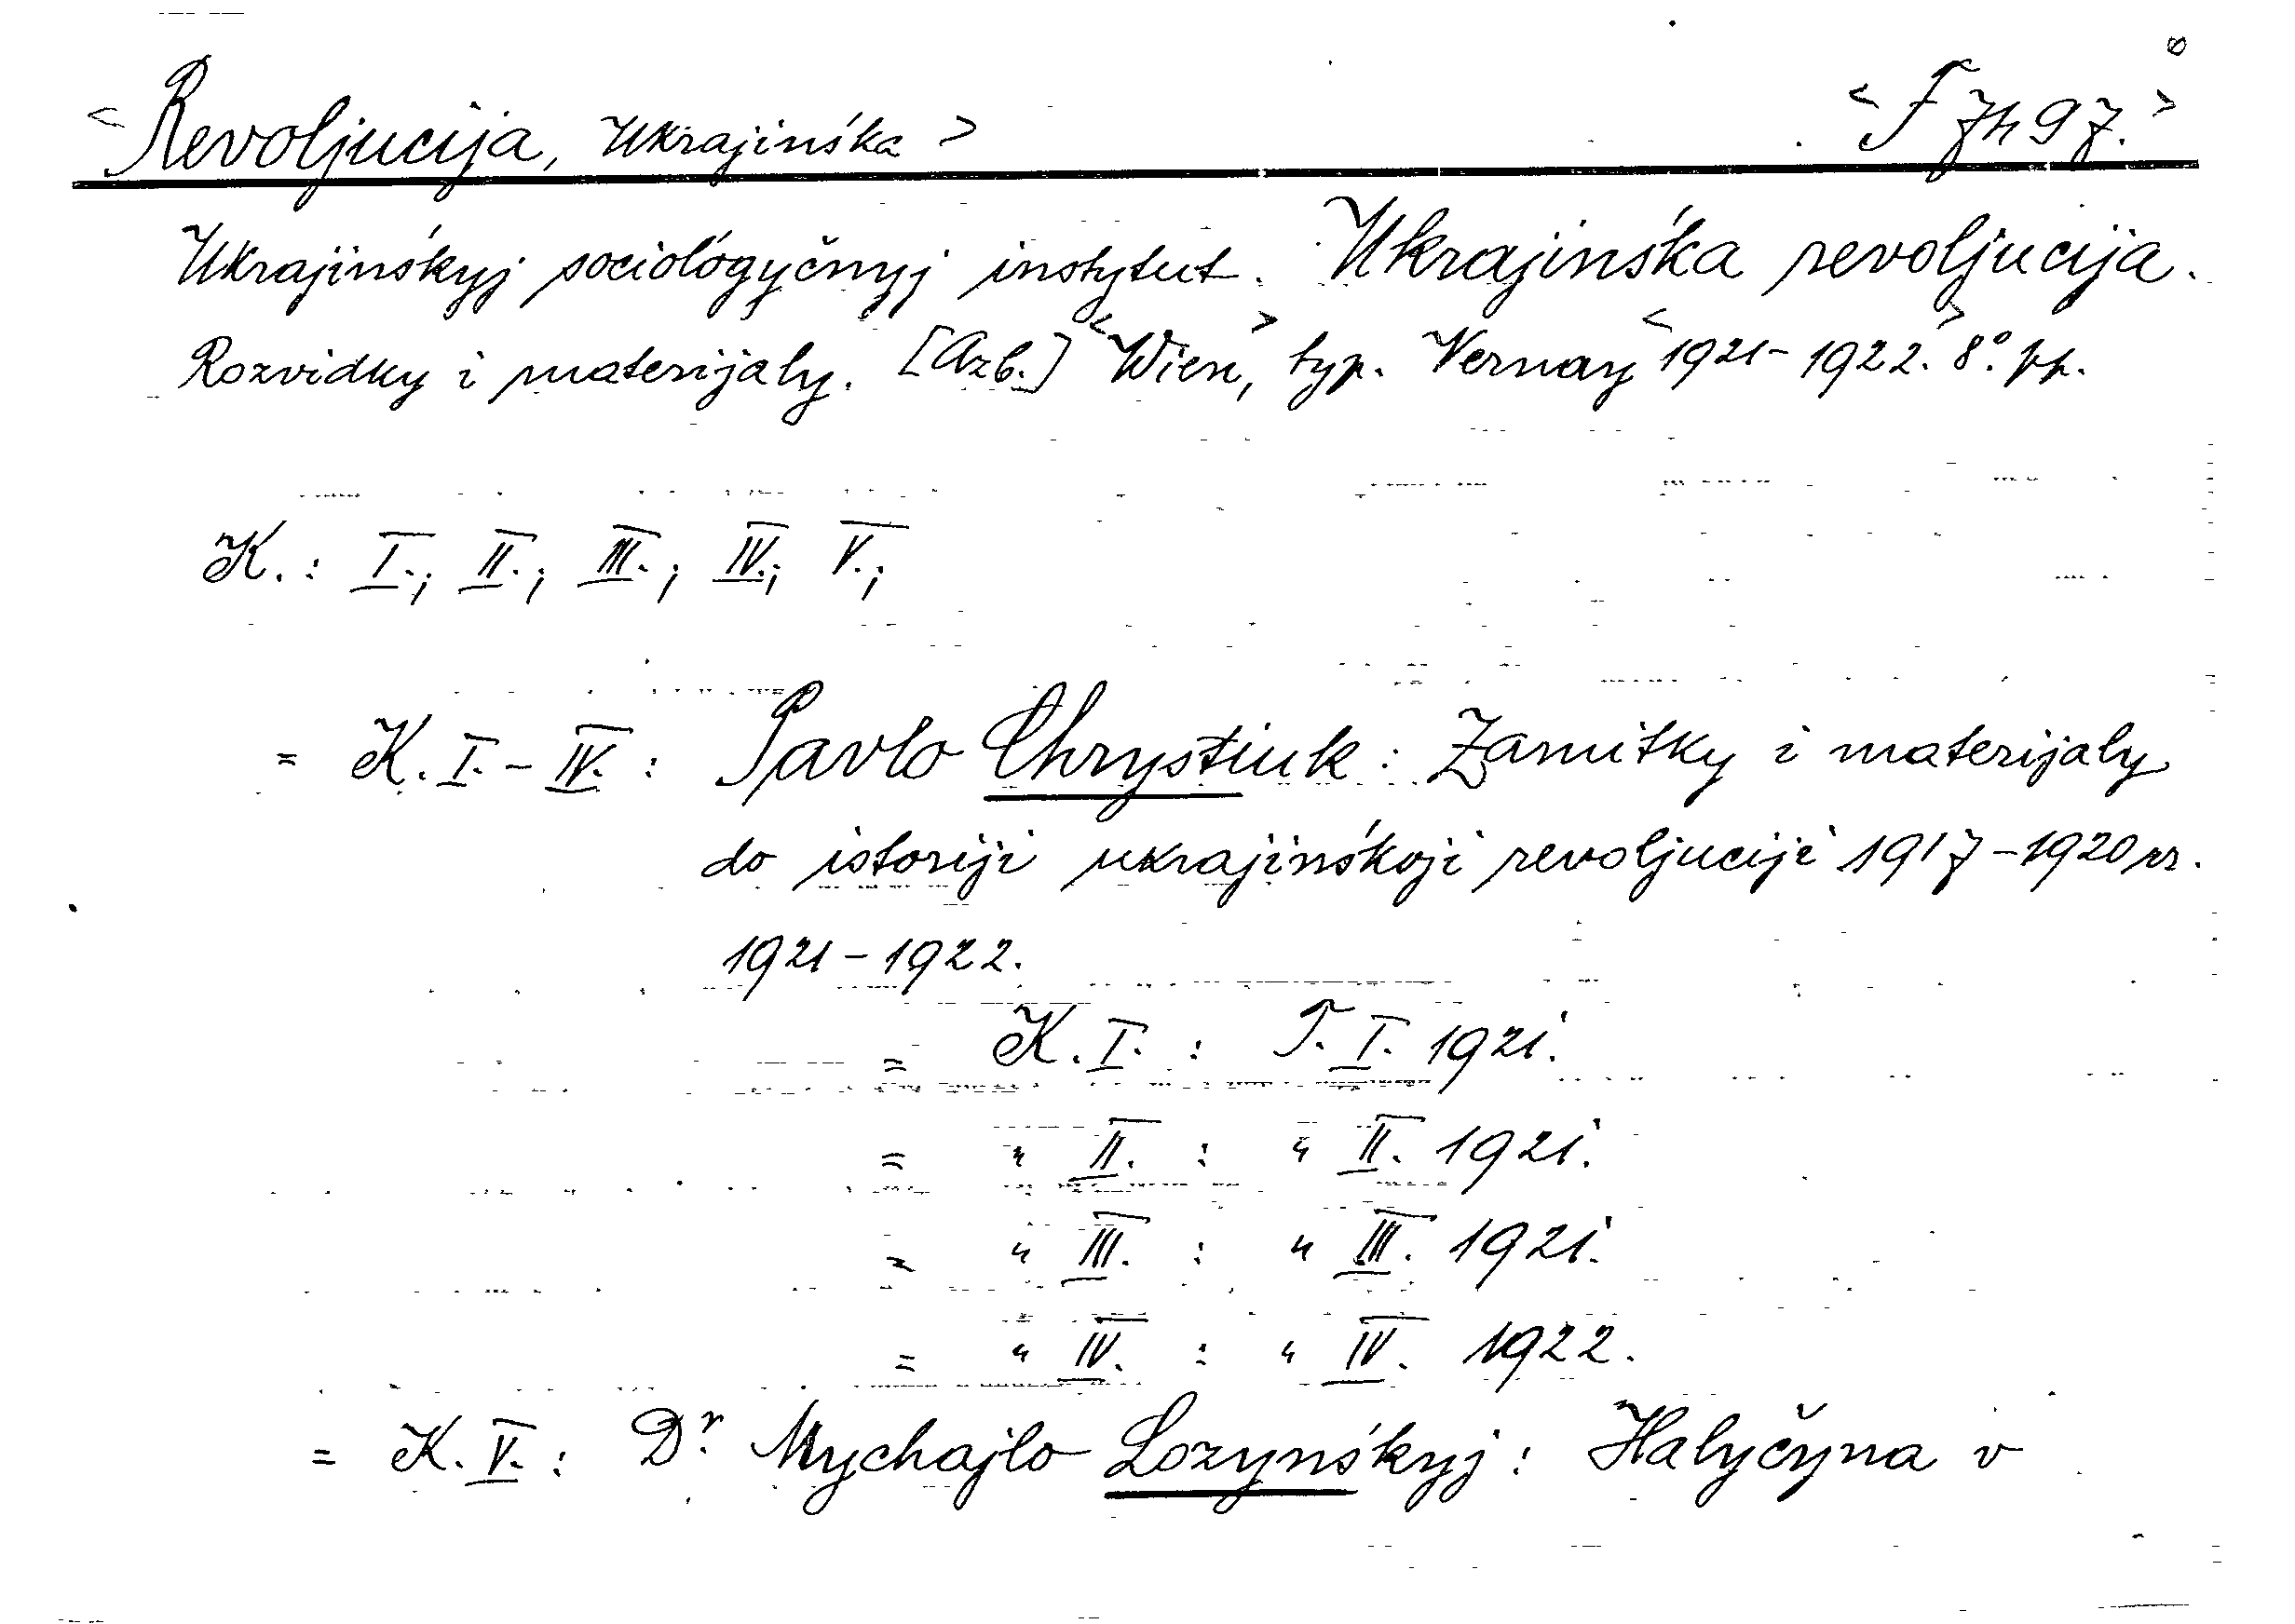 <Revoljucija, Ukrajinśka> <F 7497.>
Ukrajinśkyj sociol'ogyčnyj instytut. Ukrajinśka revoljucija.
Rozvidky i materijaly. [Azb.] <Wien,> typ. Vernay <1921-1922.> 8° pp.
K.: I.; II.; III.; IV.; V.;
= K. I. - IV. : Pavlo Chrystiuk : Zamitky i materijaly
do istoriji ukrajinśkoji revoljuciji 1917-1920 rr.
1921-1922.
= K. I. : T. I. 1921.
= " II. : " II. 1921.
= " III. : " III. 1921.
= " IV. : " IV. 1922.
= K. V. : Dr. Mychajlo Lozynśkyj : Halyčyna v